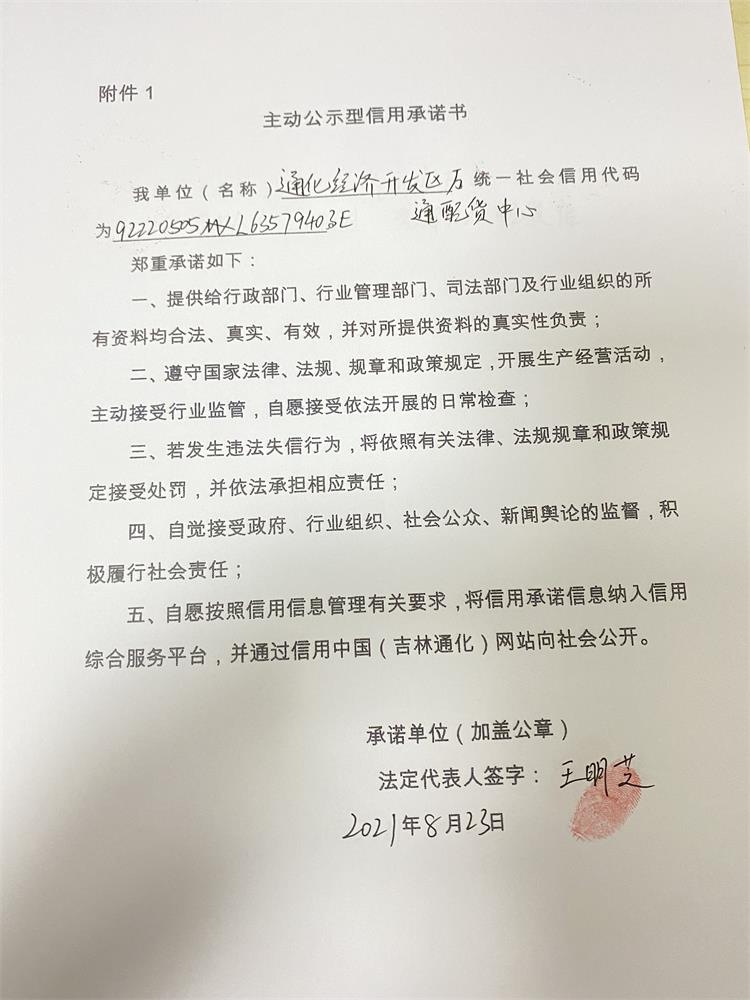 附件1
主动公示型信用承诺书
我单位(名称)通化经济开发区万统一社会信用代码
为92220505MXL63579403E 通配货中心
郑重承诺如下：
一、提供给行政部门、行业管理部门、司法部门及行业组织的所
有资料均合法、真实、有效，并对所提供资料的真实性负责；
二、遵守国家法律、法规、规章和政策规定，开展生产经营活动，
主动接受行业监管，自愿接受依法开展的日常检查；
三、若发生违法失信行为，将依照有关法律、法规规章和政策规
定接受处罚，并依法承担相应责任；
四、自觉接受政府、行业组织、社会公众、新闻舆论的监督，积
极履行社会责任；
五、自愿按照信用信息管理有关要求，将信用承诺信息纳入信用
综合服务平台，并通过信用中国(吉林通化)网站向社会公开。
承诺单位(加盖公章)
法定代表人签字：王明芝
2021年8月23日